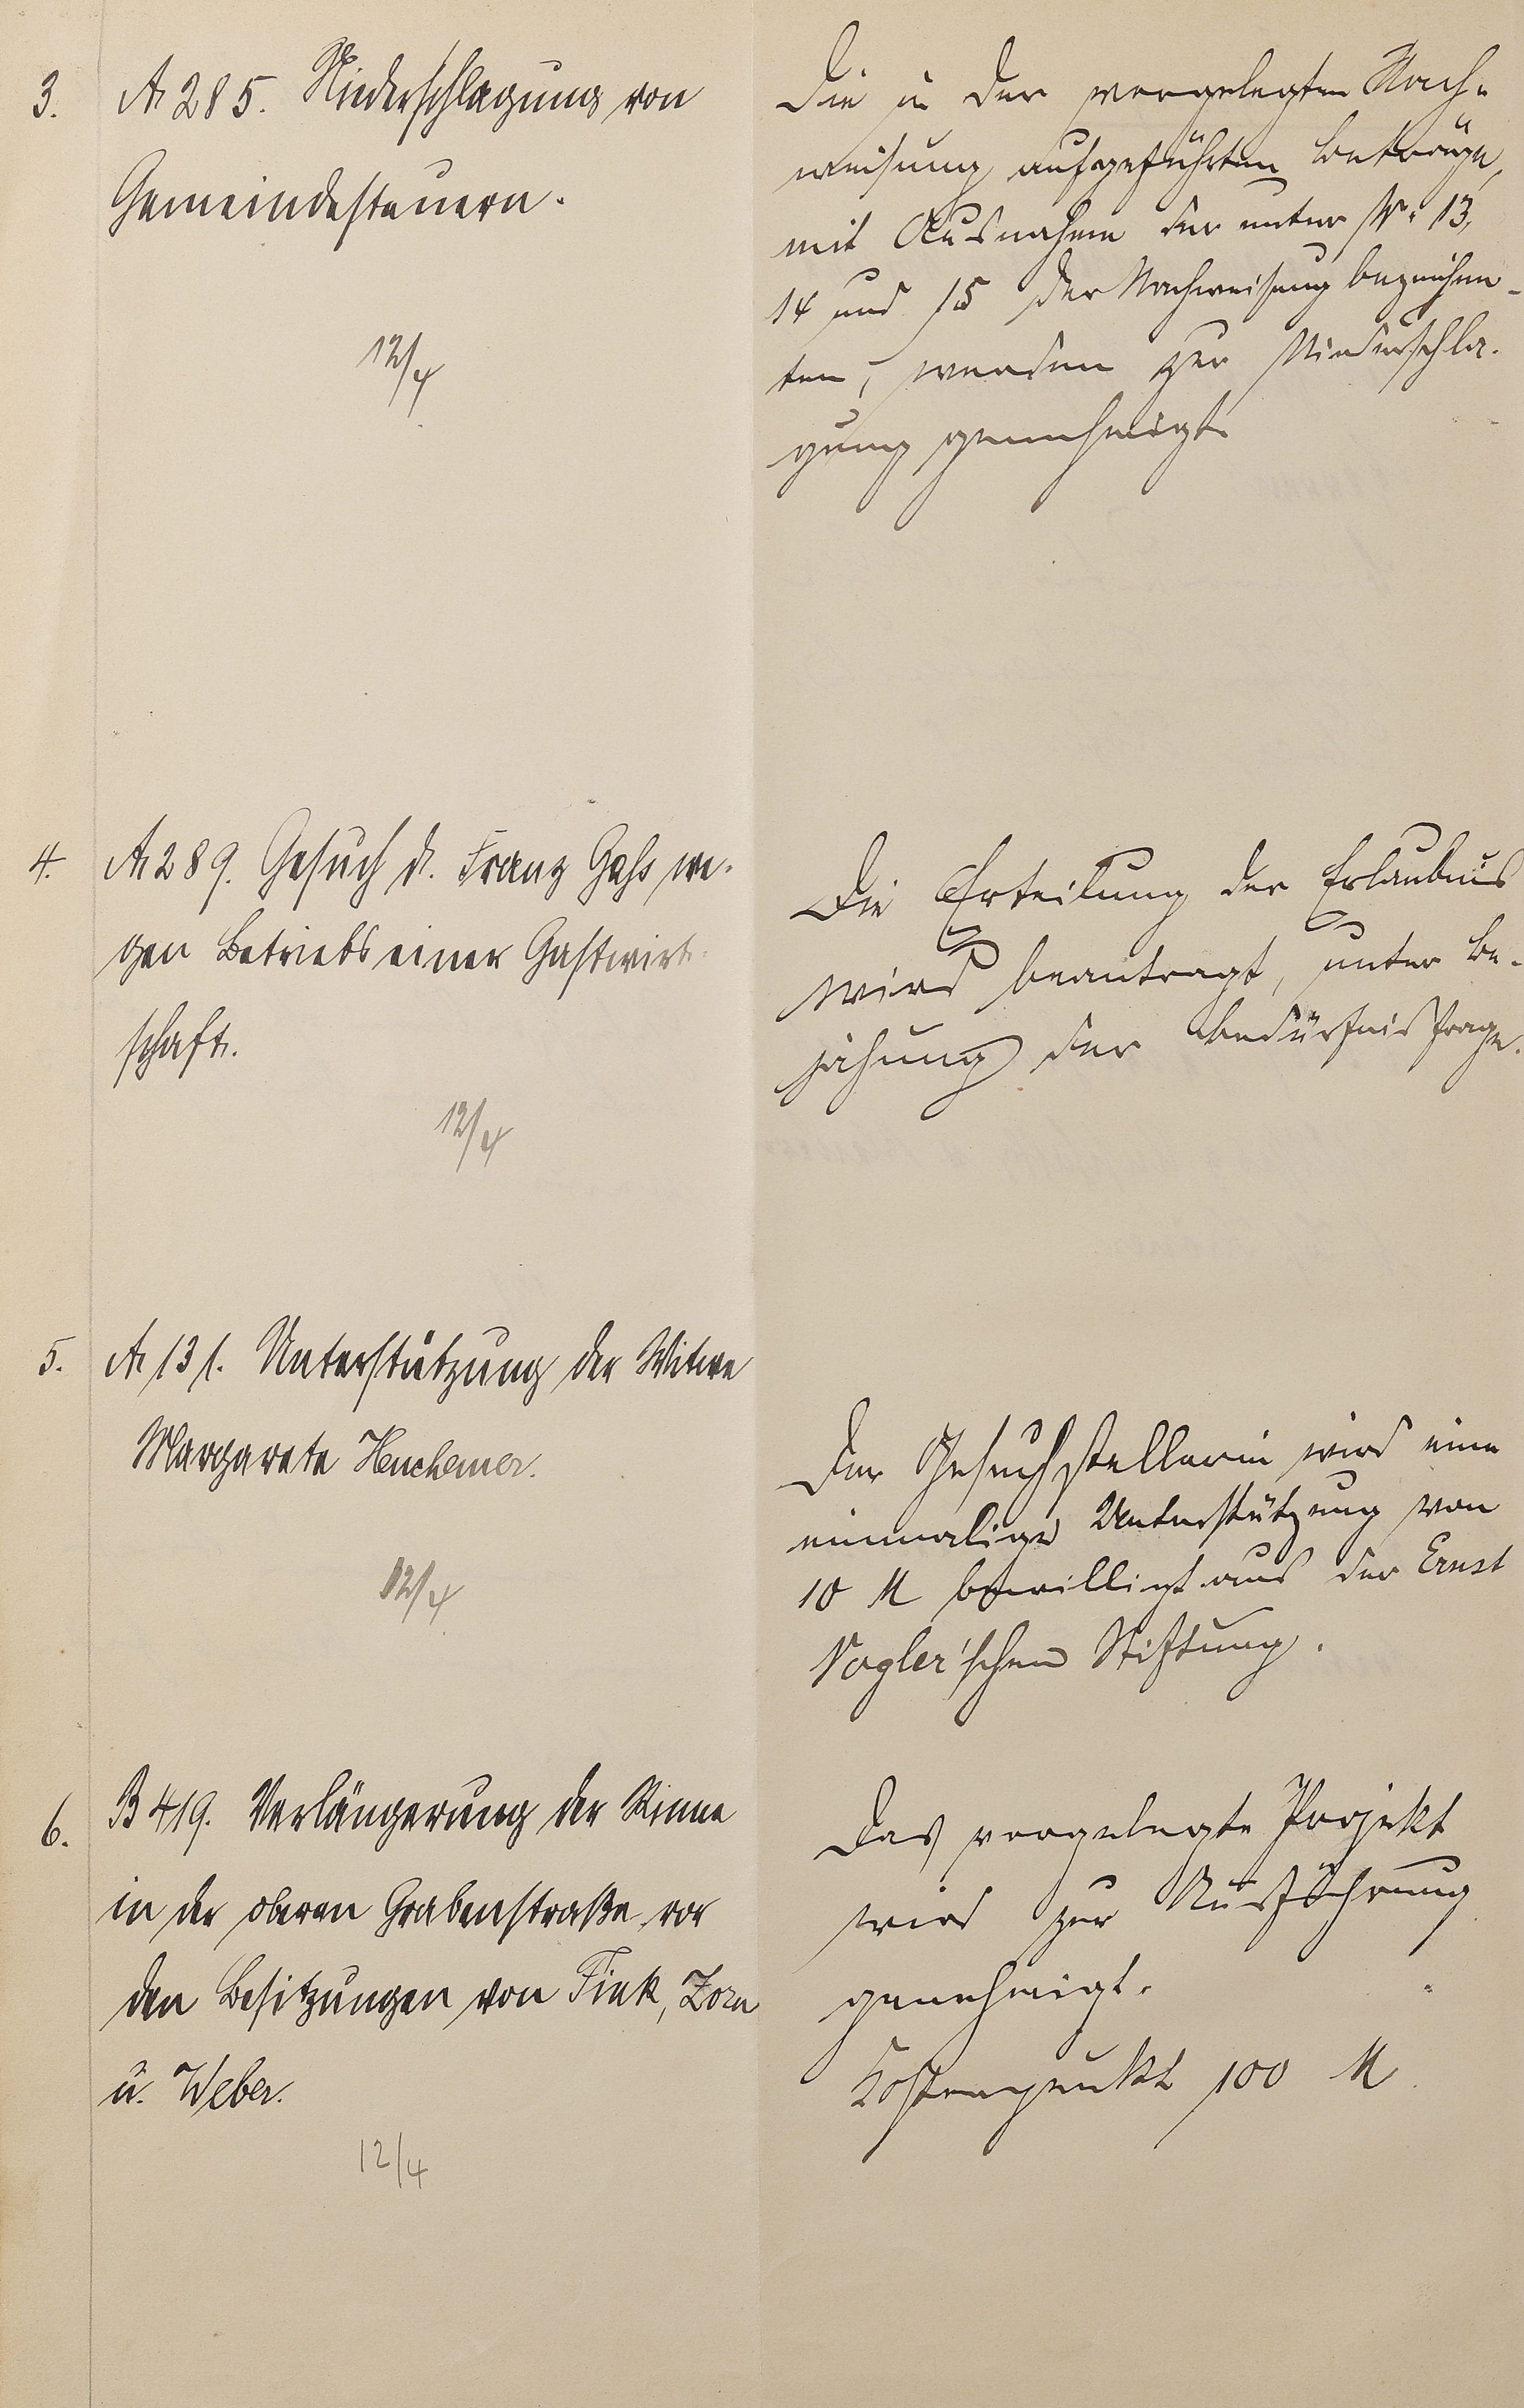 3. A 285. Niederschlagung von
Gemeindesteuern.
12/4
Die in der vorgelegten Nach-
weisung aufgeführten Beträge,
mit Ausnahme der unter Nr. 13,
14 und 15 der Nachweisung bezeichne-
ten, werden zur Niederschla-
gung genehmigt.
4. A 289. Gesuch d. Franz Gass we-
gen Betriebs einer Gastwirt-
schaft.
12/4
Die Erteilung der Erlaubnis
wird beantragt, unter Be-
jahung der Bedürfnisfrage.
5. A 131. Unterstützung der Witwe
Margarete Henchemer.
12/4
Der Gesuchstellerin wird eine
einmalige Unterstützung von
10 M bewilligt aus der Ernst
Vogler'schen Stiftung.
6. B 419. Verlängerung der Rinne
in der oberen Grabenstraße vor
den Besitzungen von Fink, Zorn
u. Weber.
12/4
Das vorgelegte Projekt
wird zur Ausführung
genehmigt.
Kostenpunkt 100 M.